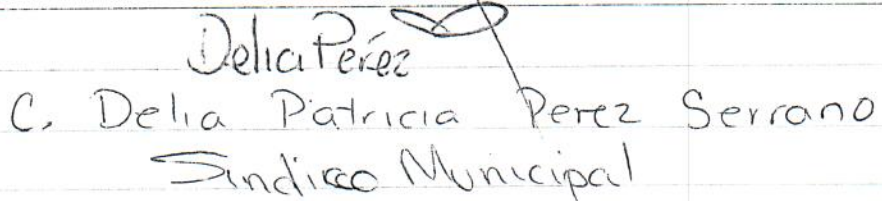 Delia Peréz
C. Delia Patricia Perez Serrano
Sindico Municipal